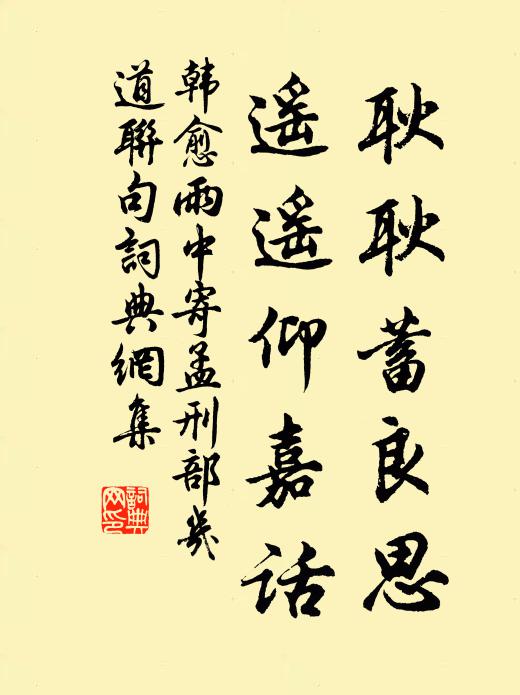 耿耿蓄良思
遥遥仰嘉话
韩愈雨中寄孟刑部几
道聯句詞典網集
詞典
网印